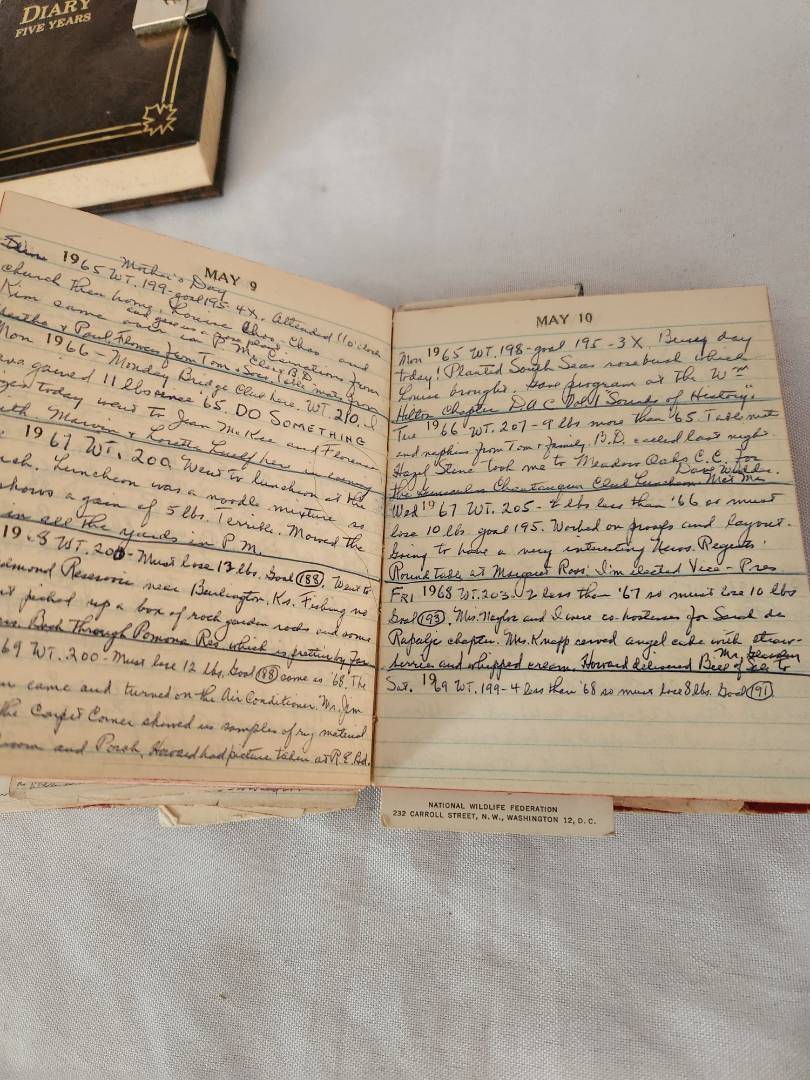 DIARY
FIVE YEARS
MAY 9
Mother's Day
1965 WT. 199-goal 195-4X. Attended 11 o'clock
church then home. Louise, Chas and
Kim came out in P.M.
& Paul. Flowers from Tom & Sara. Table mats from
Mon 1966 - Monday Bridge Club here. WT. 210. I
gained 11 lbs since '65. DO SOMETHING
today went to Jean McKee and Florence
Marvin & Loretta here in evening
1967 WT. 200. Went to luncheon at the
Luncheon was a noodle mixture so
shows a gain of 5 lbs. Terrible. Mowed the
in all the yards in P.M.
19 8 WT. 200 - Must lose 12 lbs. Goal (188). Went to
Reservoir near Burlington, Ks. Fishing no
picked up a box of rock garden rocks and some
Back through Pomona Res which is prettier by far
69 WT. 200 - Must lose 12 lbs. Goal (188) same as '68. The
came and turned on the Air Conditioner. Mr. Jim
the Carpet Corner showed us samples of rug material
room and Porch. Howard had picture taken at R.E. Bd.
MAY 10
Mon 1965 WT. 198-goal 195-3X. Busy day
today! Planted South Seas rosebush which
Louise brought. Gave program at the Wm
Hilton Chapter DAC "Sounds of History"
Tue 1966 WT. 207-9 lbs more than '65. Table mats
and napkins from Tom & family. B.D. called last night.
Hazel Stene took me to Meadow Oaks C.C. for
the Chautauqua Club Luncheon Met Mrs Dave
Wed 1967 WT. 205- 2 lbs less than '66 so must
lose 10 lbs. goal 195. Worked on proofs and layout.
Going to have a very interesting News. Regents'
Round table at Margaret Ross' I'm elected Vice-Pres
FRI 1968 WT. 203. 2 less than '67 so must lose 10 lbs
Goal (193). Mrs. Naylor and I were co-hostesses for Sarah de
Rapalje chapter. Mrs. Knapp served angel cake with straw-
berries and whipped cream. Howard delivered Bill of Sale to Mr.
Sat. 1969 WT. 199-4 less than '68 so must lose 8 lbs. Goal (191)
NATIONAL WILDLIFE FEDERATION
232 CARROLL STREET, N.W., WASHINGTON 12, D.C.